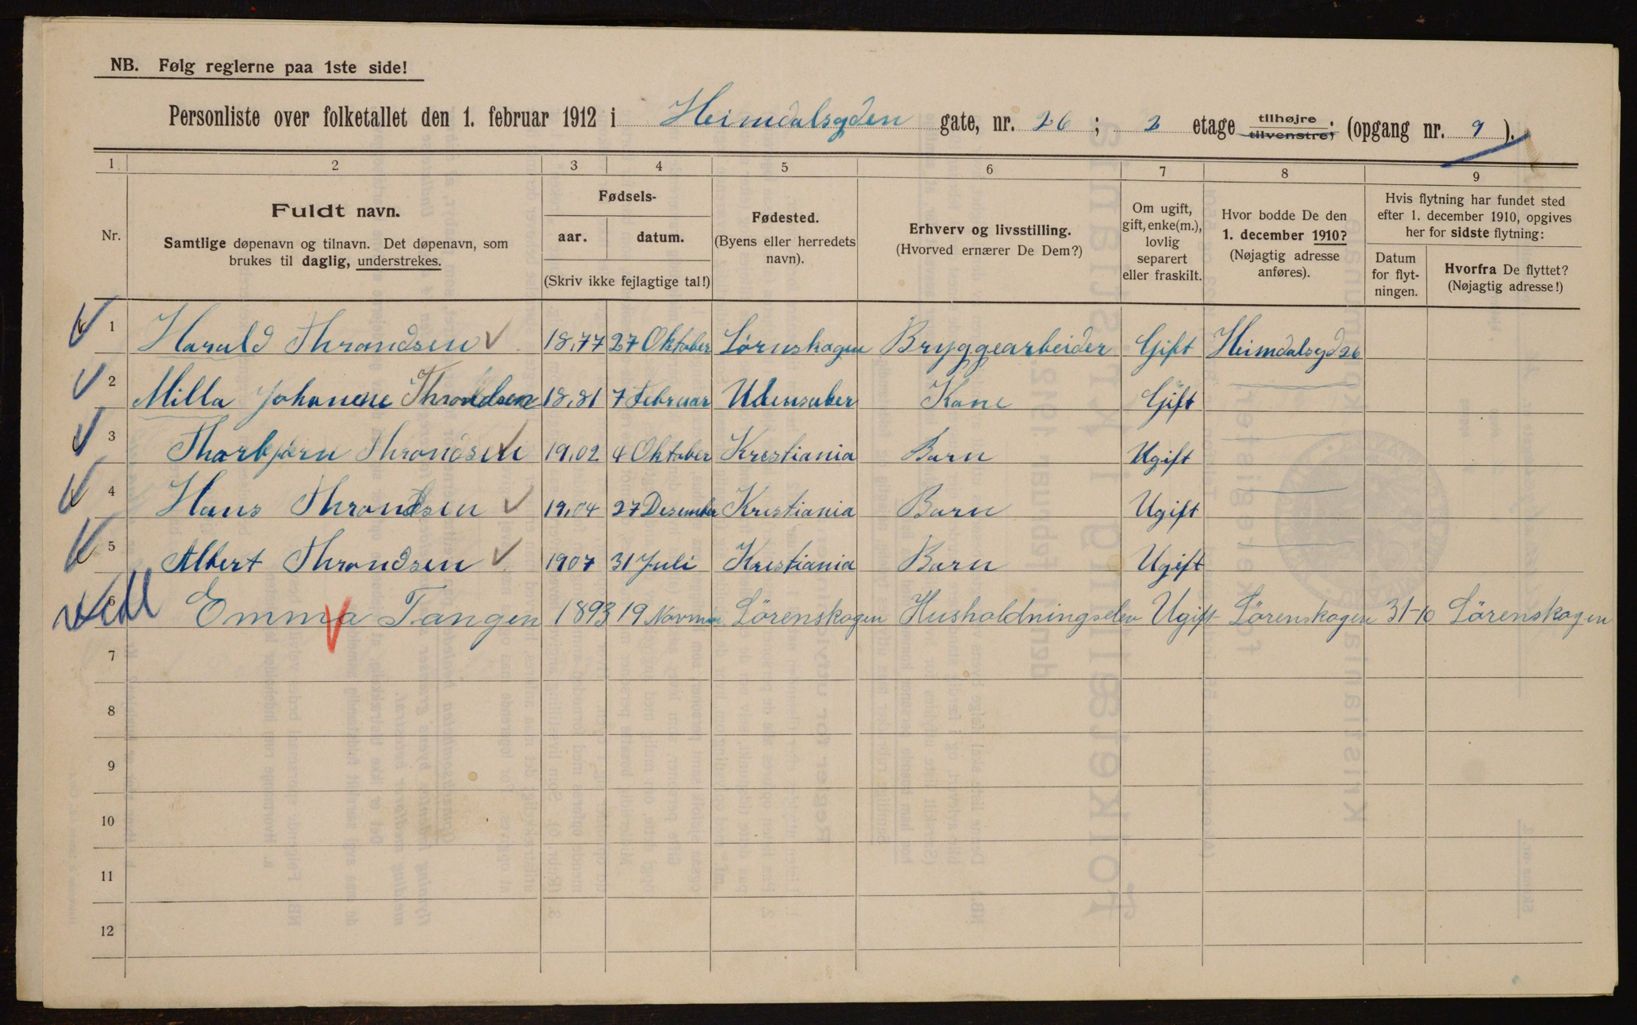 NB. Følg reglerne paa 1ste side!
Personliste over folketallet den 1. februar 1912 i Heimdalsgden gate, nr. 26 ; 2 etage tilhøjre tilvenstre; (opgang nr. 9 ).
1 2 3 4 5 6 7 8 9
Nr.
Fuldt navn.
Samtlige døpenavn og tilnavn. Det døpenavn, som
brukes til daglig, understrekes.
Fødsels-
aar. datum.
(Skriv ikke fejlagtige tal!)
Fødested.
(Byens eller herredets
navn).
Erhverv og livsstilling.
(Hvorved ernærer De Dem?)
Om ugift,
gift, enke(m.),
lovlig
separert
eller fraskilt.
Hvor bodde De den
1. december 1910?
(Nøjagtig adresse
anføres).
Hvis flytning har fundet sted
efter 1. december 1910, opgives
her for sidste flytning:
Datum
for flyt-
ningen.
Hvorfra De flyttet?
(Nøjagtig adresse!)
1 Harald Throndsen 18,77 27 Oktober Lørnskogen Bryggearbeider Gift Heimdalsgd 26
2 Milla Johanne Throndsen 18,81 7 Februar Udensaker Kone Gift
3 Thorbjørn Throndsen 19,02 4 Oktober Kristiania Barn Ugift
4 Hans Throndsen 19,04 27 Desember Kristiania Barn Ugift
5 Albert Throndsen 1907 31 Juli Kristiania Barn Ugift
6 Emma Tangen 1893 19 Lørenskogen Husholdningselev Ugift Lørenskogen 31-10 Lørenskogen
7
8
9
10
11
12